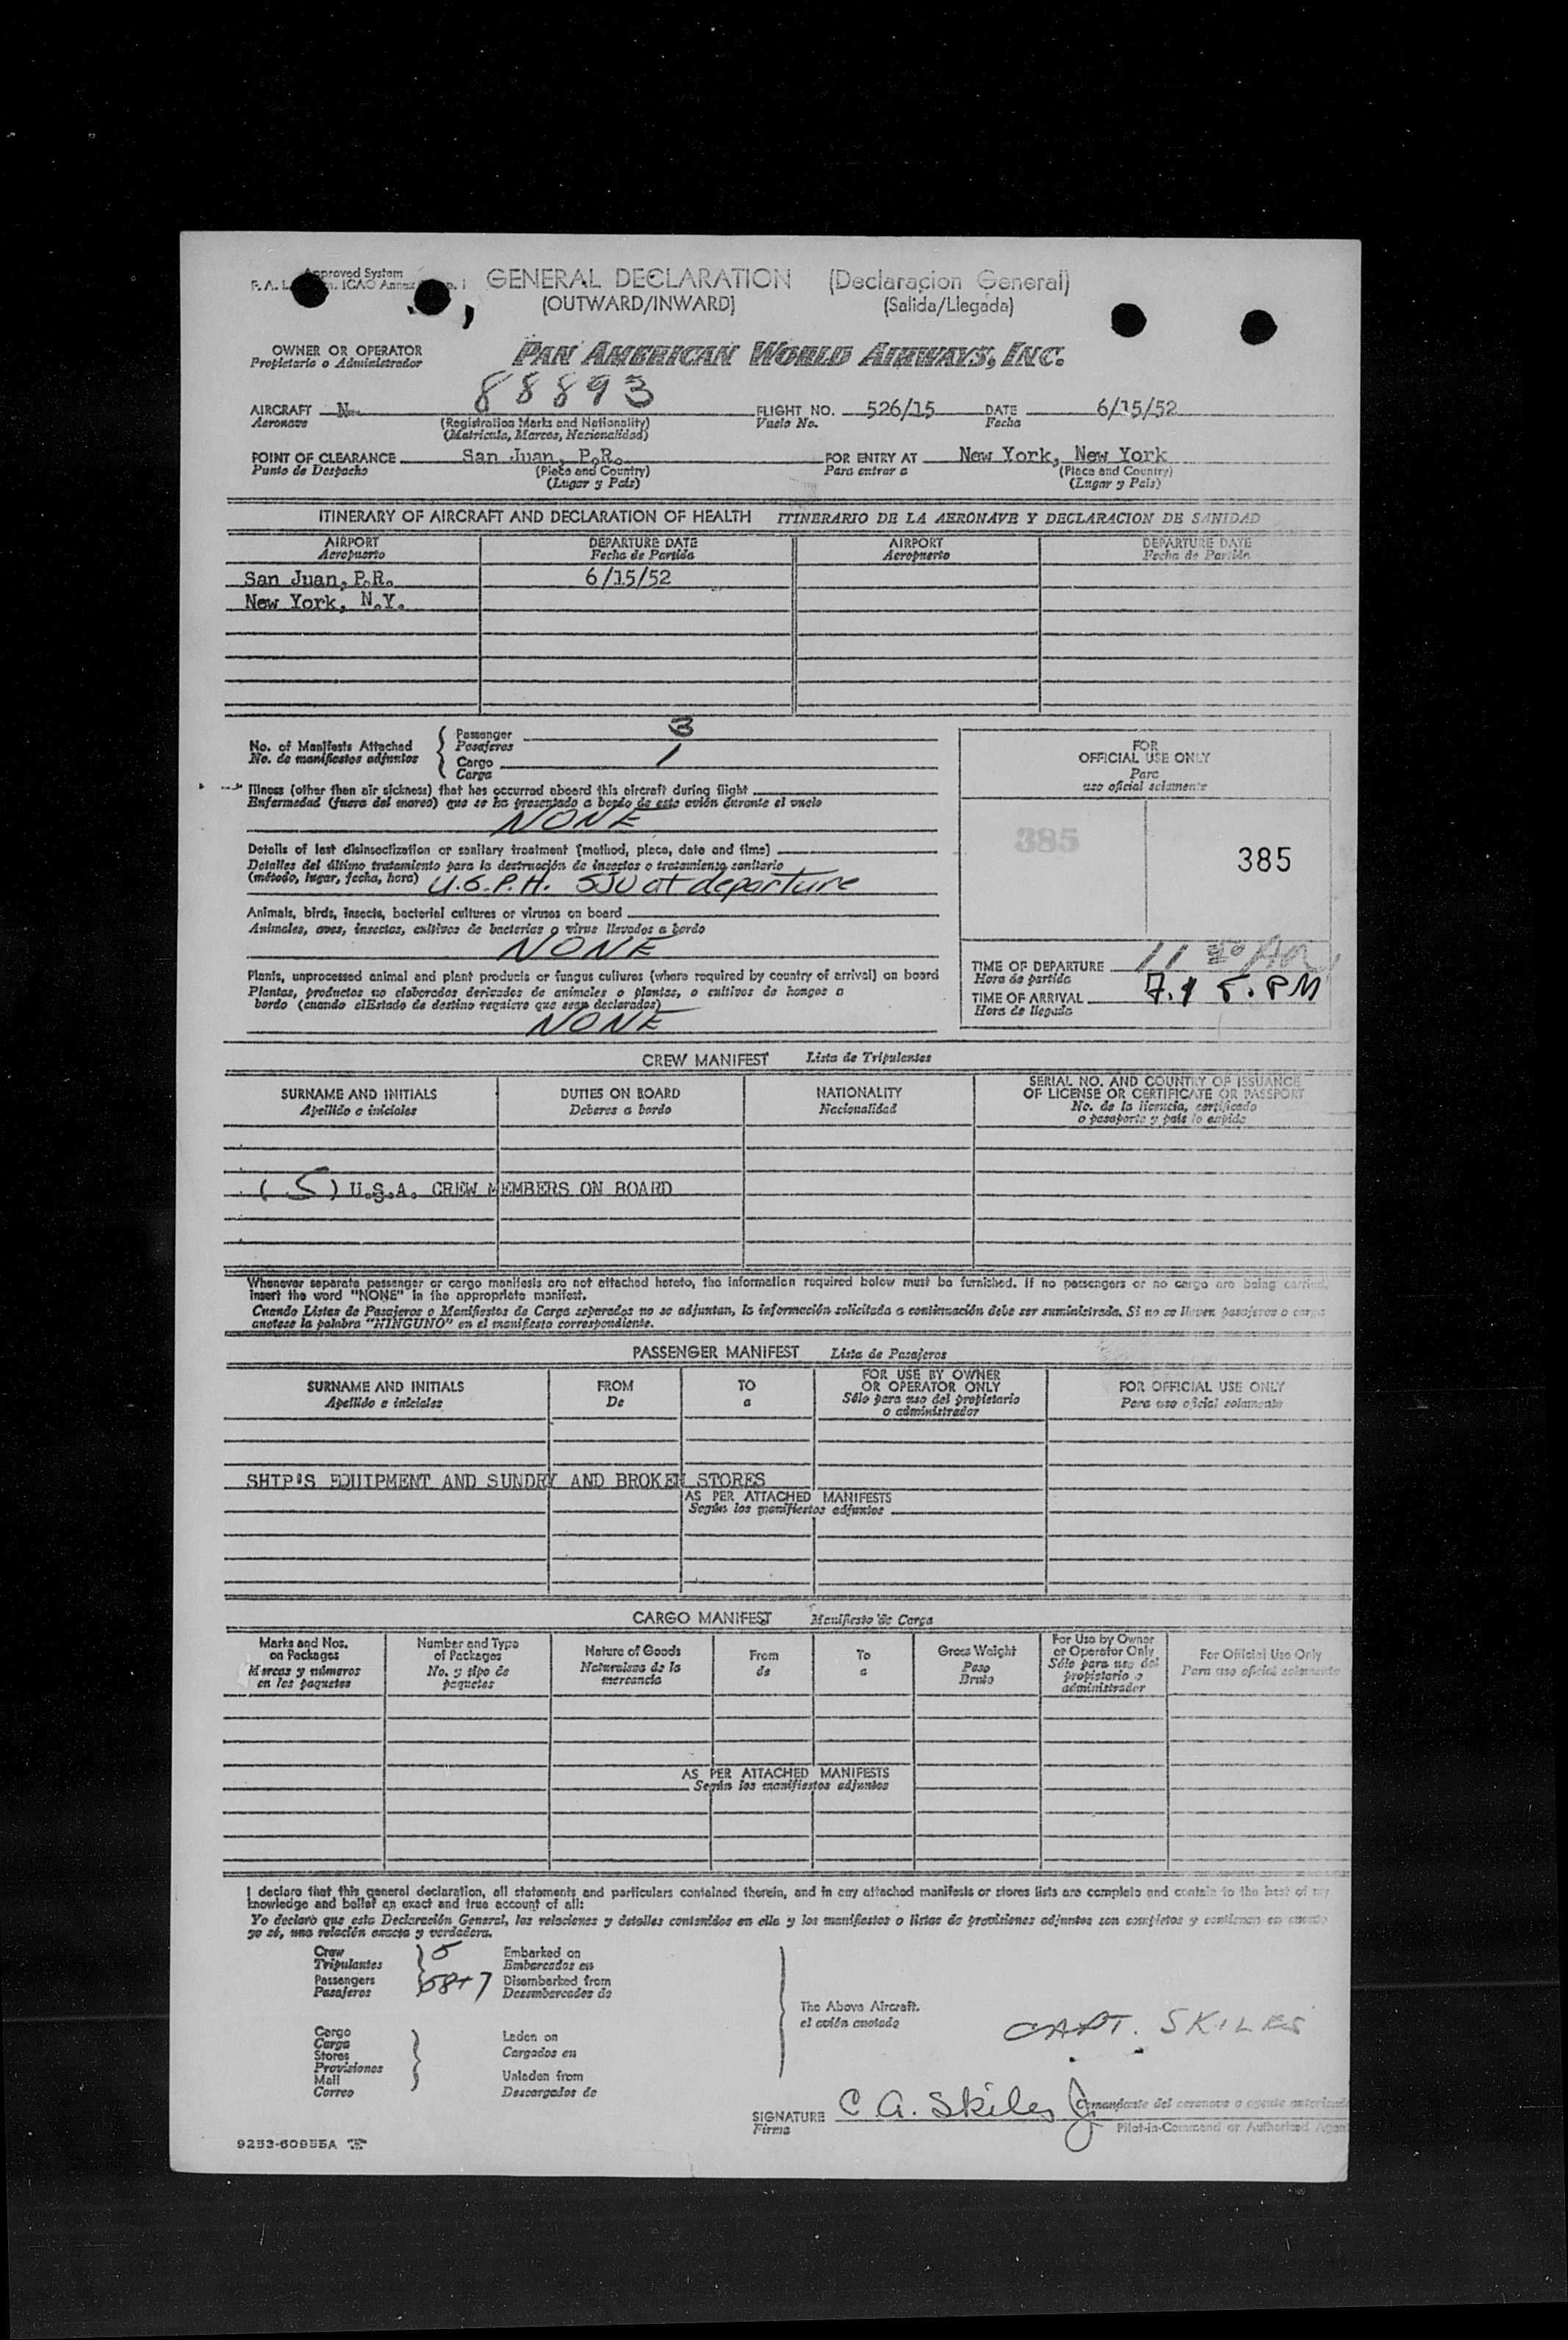 Approved System
GENERAL DECLARATION (Declaracion General)
(OUTWARD/INWARD) (Salida/Llegada)
OWNER OR OPERATOR PAN AMERICAN WORLD AIRWAYS, INC.
Propietario o Administrador
88893
AIRCRAFT N FLIGHT NO. 526/15 DATE 6/15/52
Aeronave (Registration Marks and Nationality) Vuelo No. Fecha
(Matricula, Marcas, Nacionalidad)
POINT OF CLEARANCE San Juan, P.R. FOR ENTRY AT New York, New York
Punto de Despacho (Place and Country) Para entrar a (Place and Country)
(Lugar y País) (Lugar y País)
ITINERARY OF AIRCRAFT AND DECLARATION OF HEALTH ITINERARIO DE LA AERONAVE Y DECLARACION DE SANIDAD
AIRPORT DEPARTURE DATE AIRPORT DEPARTURE DATE
Aeropuerto Fecha de Partida Aeropuerto Fecha de Partida
San Juan, P.R. 6/15/52
New York, N.Y.
No. of Manifests Attached Passenger 3
No. de manifiestos adjuntos Pasajeros
Cargo 1
Carga
FOR
OFFICIAL USE ONLY
Para
uso oficial solamente
Illness (other than air sickness) that has occurred aboard this aircraft during flight
Enfermedad (fuera del mareo) que se ha presentado a bordo de este avión durante el vuelo
NONE
385 385
Details of last disinsectization or sanitary treatment (method, place, date and time)
Detalles del último tratamiento para la destrucción de insectos o tratamiento sanitario
(método, lugar, fecha, hora) U.S.P.H. SJU at departure
Animals, birds, insects, bacterial cultures or viruses on board
Animales, aves, insectos, cultivos de bacterias o virus llevados a bordo
NONE
Plants, unprocessed animal and plant products or fungus cultures (where required by country of arrival) on board
Plantas, productos no elaborados derivados de animales o plantas, o cultivos de hongos a
bordo (cuando elEstado de destino requiere que sean declarados)
NONE
TIME OF DEPARTURE 11
Hora de partida
TIME OF ARRIVAL PM
Hora de llegada
CREW MANIFEST Lista de Tripulantes
SURNAME AND INITIALS DUTIES ON BOARD NATIONALITY SERIAL NO. AND COUNTRY OF ISSUANCE
OF LICENSE OR CERTIFICATE OR PASSPORT
Apellido e iniciales Deberes a bordo Nacionalidad No. de la licencia, certificado
o pasaporte y país lo expide
(5) U.S.A. CREW MEMBERS ON BOARD
Whenever separate passenger or cargo manifests are not attached hereto, the information required below must be furnished. If no passengers or no cargo are being carried,
insert the word "NONE" in the appropriate manifest.
Cuando Listas de Pasajeros o Manifiestos de Carga separados no se adjuntan, la información solicitada a continuación debe ser suministrada. Si no se lleven pasajeros o carga
anotese la palabra "NINGUNO" en el manifiesto correspondiente.
PASSENGER MANIFEST Lista de Pasajeros
SURNAME AND INITIALS FROM TO FOR USE BY OWNER
OR OPERATOR ONLY FOR OFFICIAL USE ONLY
Apellido e iniciales De a Sólo para uso del propietario
o administrador Para uso oficial solamente
SHIP'S EQUIPMENT AND SUNDRY AND BROKEN STORES
AS PER ATTACHED MANIFESTS
Según los manifiestos adjuntos
CARGO MANIFEST Manifiesto de Carga
Marks and Nos.
on Packages
Marcas y números
en los paquetes
Number and Type
of Packages
No. y tipo de
paquetes
Nature of Goods
Naturaleza de la
mercancía
From
de
To
a
Gross Weight
Peso
Bruto
For Use by Owner
or Operator Only
Sólo para uso del
propietario o
administrador
For Official Use Only
Para uso oficial solamente
AS PER ATTACHED MANIFESTS
Según los manifiestos adjuntos
I declare that this general declaration, all statements and particulars contained therein, and in any attached manifests or stores lists are complete and contain to the best of my
knowledge and belief an exact and true account of all:
Yo declaro que esta Declaración General, las relaciones y detalles contenidos en ella y los manifiestos o listas de provisiones adjuntos son completos y contienen en cuanto
yo sé, una relación exacta y verdadera.
Crew 5 Embarked on
Tripulantes Embarcados en
Passengers 58+7 Disembarked from
Pasajeros Desembarcados de
The Above Aircraft.
el avión anotado
CAPT. SKILES
Cargo
Carga
Stores
Provisiones
Mail
Correo
Laden on
Cargados en
Unladen from
Descargados de
SIGNATURE C A. Skiles Jr
Firma
Comandante del aeronave o agente autorizado
Pilot-in-Command or Authorized Agent
9253-60955A